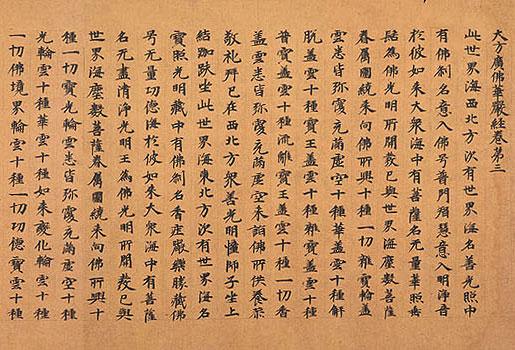 大方廣佛華嚴經卷第三
此世界海西北方次有世界海名善光照中
有佛刹名意入佛号普門頂慧意入明淨音
於彼如来大衆海中有菩薩名无量華照垂
髻為佛光明所開發已與世界海塵數菩薩
眷属圍繞来向佛所興十種一切雜寶輪蓋
雲悉皆弥覆充滿虚空十種華蓋雲十種解
脱蓋雲十種寶王蓋雲十種雜寶蓋雲十種
普寶蓋雲十種流離寶王蓋雲十種一切香
蓋雲悉皆弥覆充滿虚空来詣佛所供養恭
敬礼拜已在西北方衆善光明幢師子坐上
結跏趺坐此世界海東北方次有世界海名
寶照光明藏中有佛刹名香莊嚴樂勝藏佛
号无量功德海於彼如来大衆海中有菩薩
名无盡清淨光明王為佛光明所開發已與
世界海塵數菩薩眷属圍繞来向佛所興十
種一切寶光輪雲悉皆弥覆充滿虚空十種
光輪雲十種華雲十種如来變化輪雲十種
一切佛境界輪雲十種一切功德寶雲十種